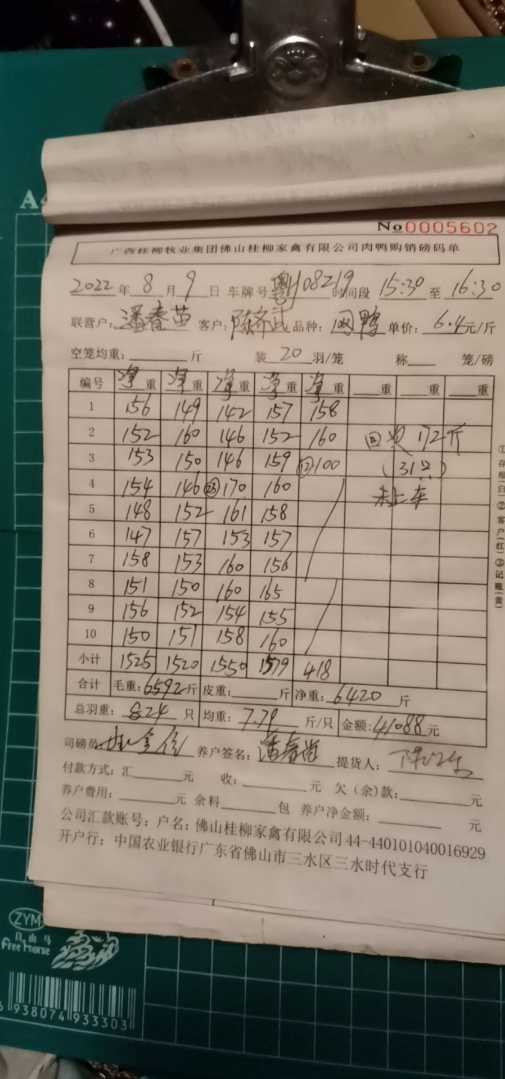 A
No0005602
广西桂柳牧业集团佛山桂柳家禽有限公司肉鸭购销磅码单
2022年8月9日 车牌号 粤J08219 时间段 15:30至16:30
联营户:潘春苗 客户: 品种: 单价:6.4元/斤
空笼均重: 斤 装20羽/笼 称 笼/磅
编号 净重 净重 净重 净重 净重 重 重 重
1 156 149 142 157 158
2 152 160 146 152 160 回 172斤
3 153 150 146 159 100 (31只)
4 154 146 170 160 未上车
5 148 152 161 158
6 147 157 153 157
7 158 153 160 156
8 151 150 160 165
9 156 152 154 155
10 150 151 158 160
小计 1525 1520 1550 1579 418
合计 毛重:6592斤 皮重: 斤 净重:6420斤
总羽重:824只 均重:7.79斤/只 金额:41088元
司磅员: 养户签名:潘春苗 提货人:
付款方式:汇 元 收: 元 欠(余)款: 元
养户费用: 元 余料 包 养户净金额: 元
公司汇款账号:户名:佛山桂柳家禽有限公司44-440101040016929
开户行:中国农业银行广东省佛山市三水区三水时代支行
①存根(白)②客户(红)③记账(黄)
ZYM
自由马
Free Horse
6 938074 933303